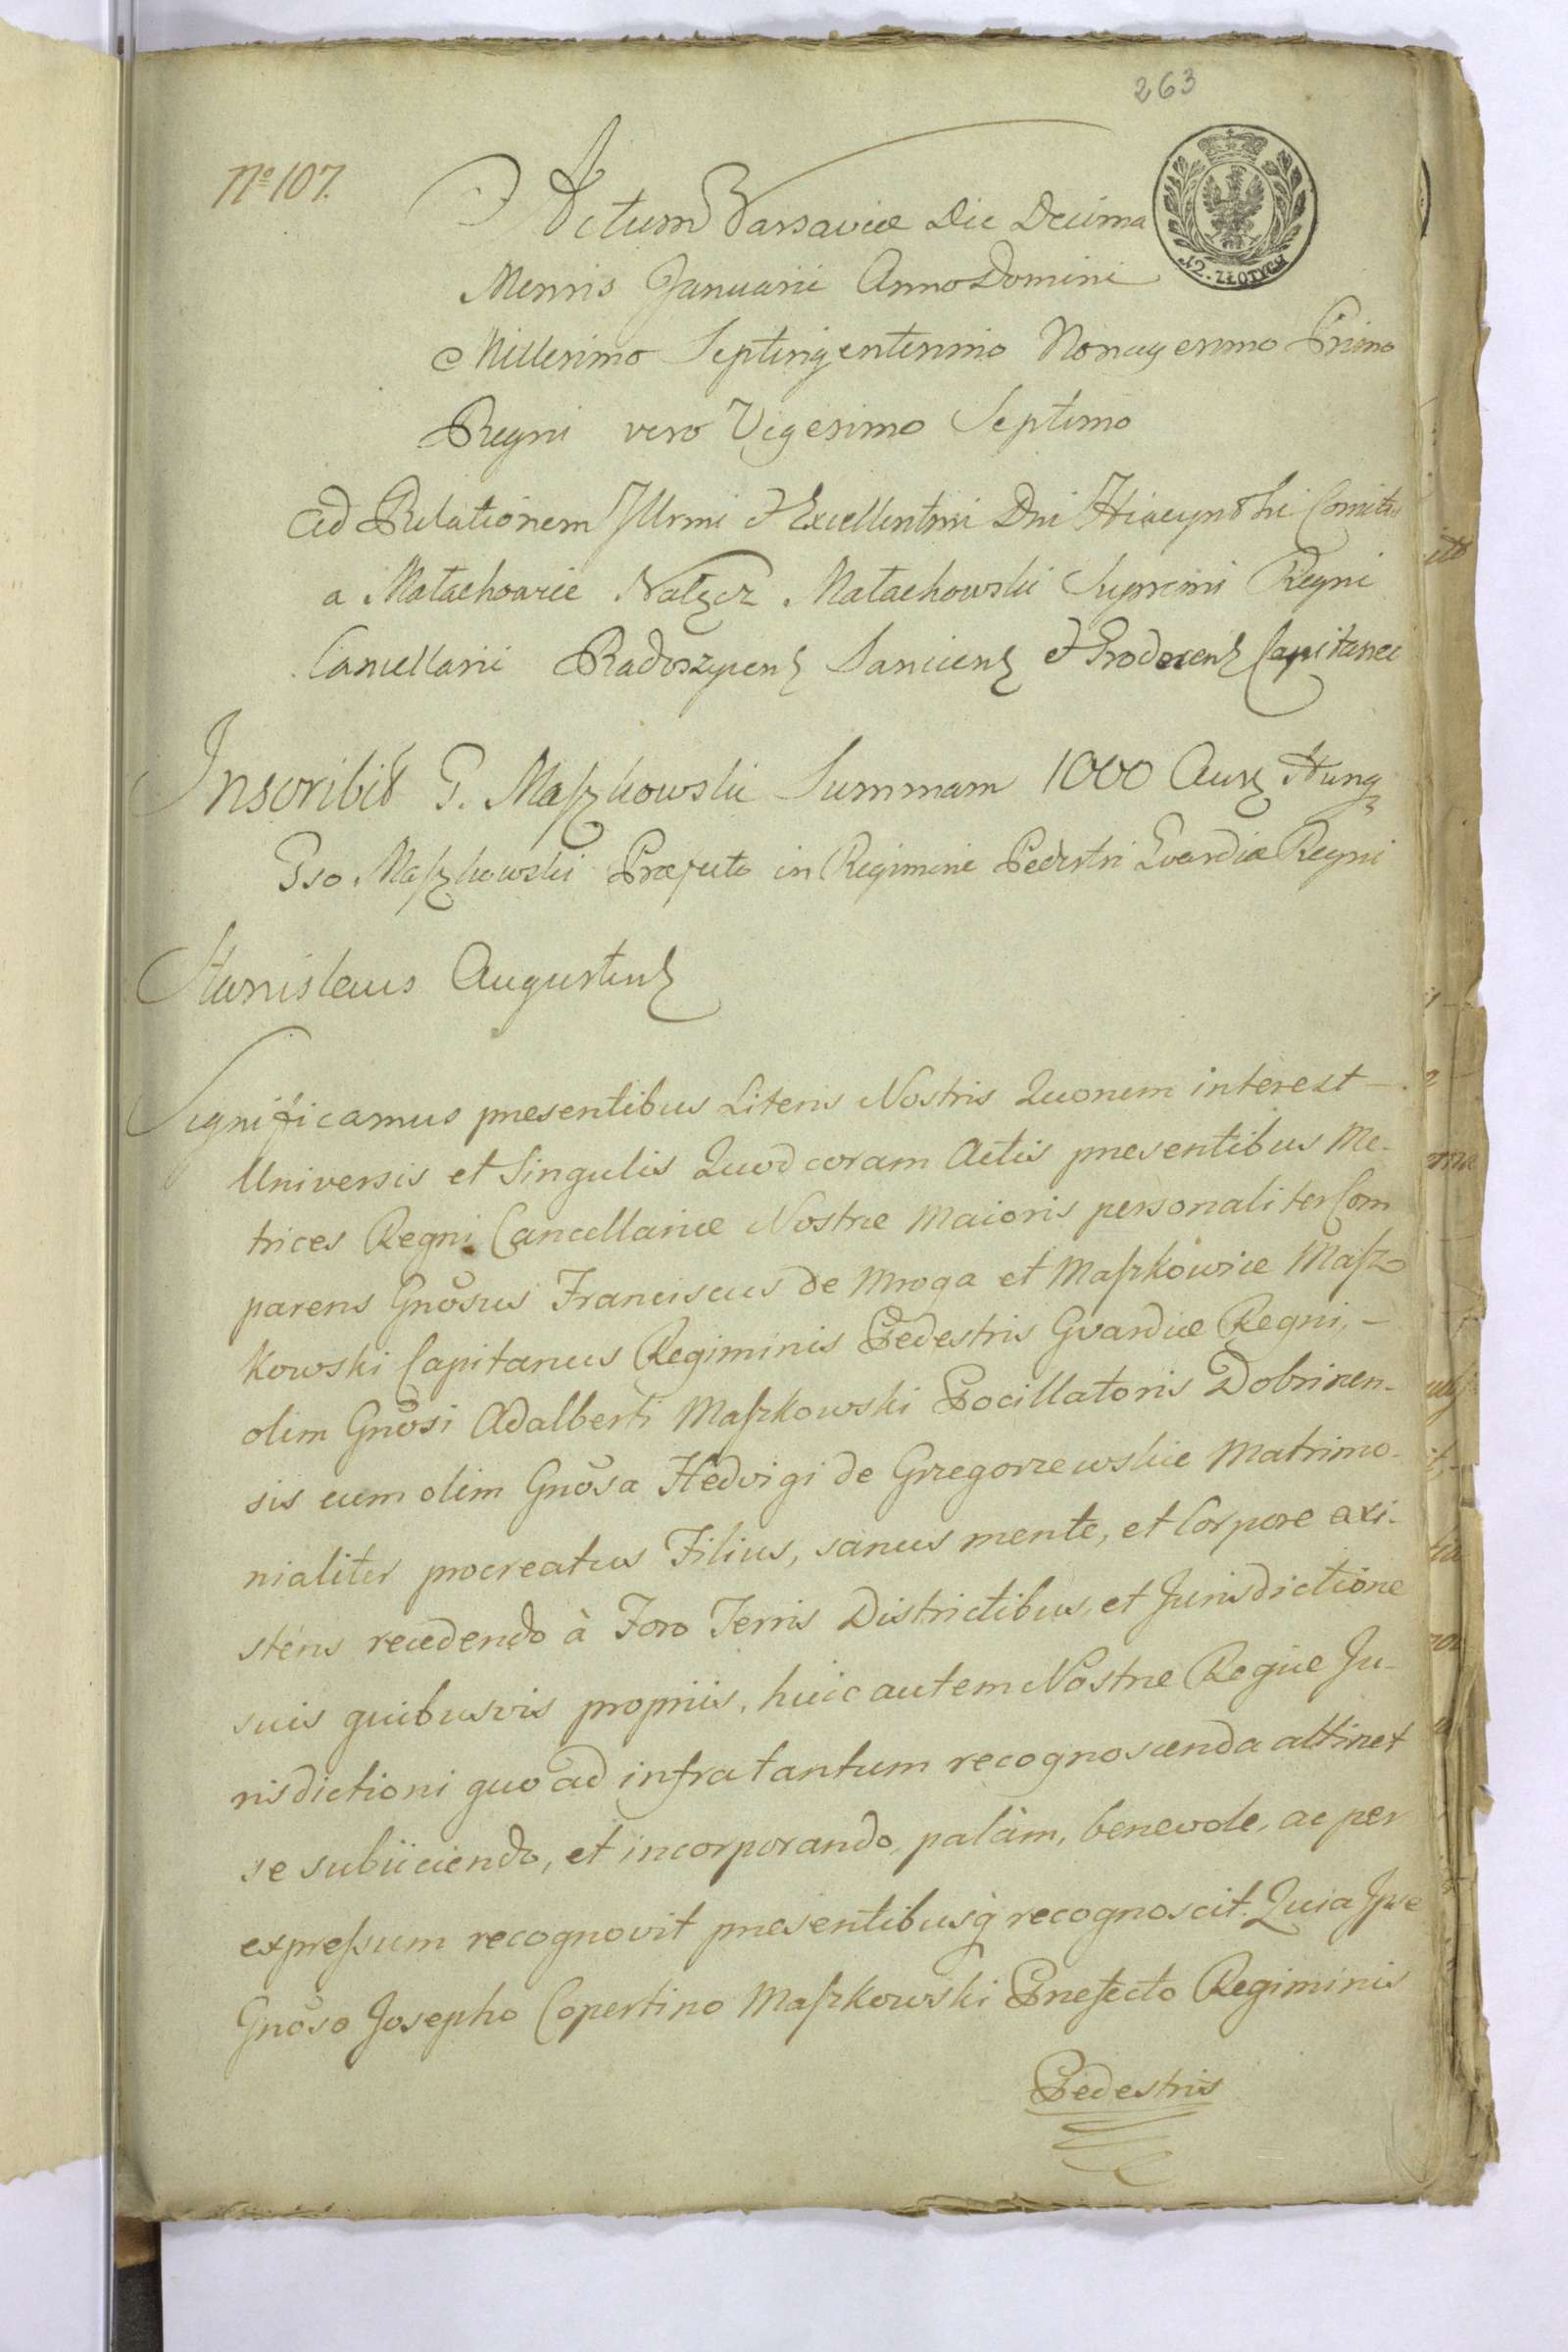 263
No 107.
Actum Varsaviæ Die Decima
Mensis Januarii Anno Domini
Millesimo Septingentesimo Nonagesimo Primo
Regni vero Vigesimo Septimo
12. ZŁOTYCH
Ad Relationem Illrmi & Excellentmi Dni Hiacynthi Comitis
a Małachowice Nałęcz Małachowski Supremi Regni
Cancellarii Radoszycens Sanicens & Grodecens Capitanei
Inscribit G. Maszkowski Summam 1000 Aur Hung
Gso Maszkowski Præfecto in Regimine Pedestri Gvardiæ Regni
Stanislaus Augustus
Significamus præsentibus Literis Nostris Quorum interest
Universis et Singulis Quod coram Actis præsentibus Me-
trices Regni Cancellariæ Nostræ Maioris personaliter Com
parens Gnõsus Franciscus de Mroga et Maszkowice Masz-
kowski Capitaneus Regiminis Pedestris Gvardiæ Regni, -
olim Gnõsi Adalberti Maszkowski Pocillatoris Dobrinen-
sis cum olim Gnõsa Hedvigi de Grzegorzewskie Matrimo-
nialiter procreatus Filius, sanus mente, et Corpore exi-
stens recedendo à Foro Terris Districtibus, et Jurisdictione
suis quibusvis propriis, huic autem Nostræ Regiæ Ju-
risdictioni quo ad infra tantum recognoscenda attinet
se subiiciendo, et incorporando, palàm, benevole, ac per
expressum recognovit præsentibusq recognoscit. Quia Ipse
Gnõso Josepho Copertino Maszkowski Præfecto Regiminis
Pedestris